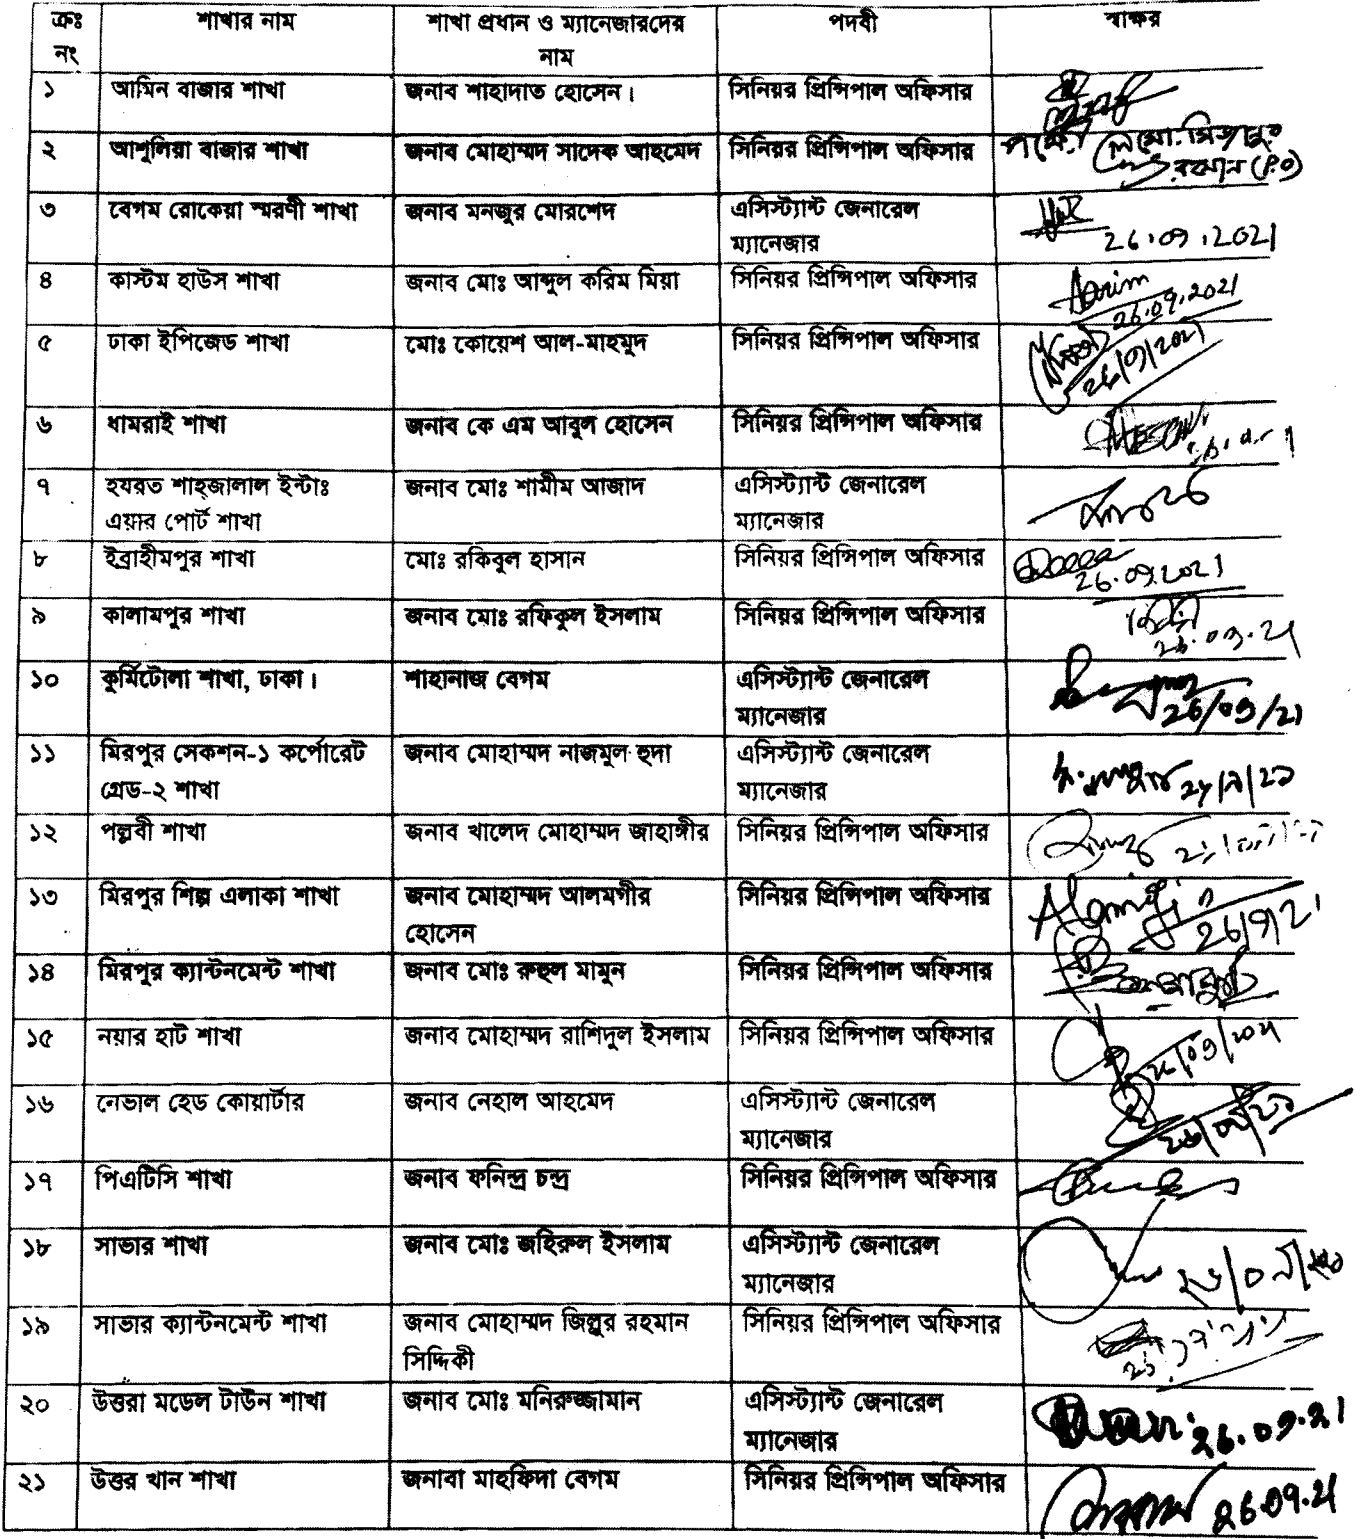 ক্রঃ নং শাখার নাম শাখা প্রধান ও ম্যানেজারদের নাম পদবী স্বাক্ষর
১ আমিন বাজার শাখা জনাব শাহাদাত হোসেন। সিনিয়র প্রিন্সিপাল অফিসার
২ আশুলিয়া বাজার শাখা জনাব মোহাম্মদ সাদেক আহমেদ সিনিয়র প্রিন্সিপাল অফিসার পক্ষে মো. মিজানুর
রহমান (P.O)
৩ বেগম রোকেয়া স্মরণী শাখা জনাব মনজুর মোরশেদ এসিস্ট্যান্ট জেনারেল
ম্যানেজার 26.09.2021
৪ কাস্টম হাউস শাখা জনাব মোঃ আব্দুল করিম মিয়া সিনিয়র প্রিন্সিপাল অফিসার Karim
26.09.2021
৫ ঢাকা ইপিজেড শাখা মোঃ কোয়েশ আল-মাহমুদ সিনিয়র প্রিন্সিপাল অফিসার
26/9/2021
৬ ধামরাই শাখা জনাব কে এম আবুল হোসেন সিনিয়র প্রিন্সিপাল অফিসার
৭ হযরত শাহ্জালাল ইন্টাঃ জনাব মোঃ শামীম আজাদ এসিস্ট্যান্ট জেনারেল
এয়ার পোর্ট শাখা ম্যানেজার
৮ ইব্রাহীমপুর শাখা মোঃ রকিবুল হাসান সিনিয়র প্রিন্সিপাল অফিসার
26.09.2021
৯ কালামপুর শাখা জনাব মোঃ রফিকুল ইসলাম সিনিয়র প্রিন্সিপাল অফিসার
26.09.21
১০ কুর্মিটোলা শাখা, ঢাকা। শাহানাজ বেগম এসিস্ট্যান্ট জেনারেল
ম্যানেজার 26/09/21
১১ মিরপুর সেকশন-১ কর্পোরেট জনাব মোহাম্মদ নাজমুল হুদা এসিস্ট্যান্ট জেনারেল
গ্রেড-২ শাখা ম্যানেজার
১২ পল্লবী শাখা জনাব খালেদ মোহাম্মদ জাহাঙ্গীর সিনিয়র প্রিন্সিপাল অফিসার
১৩ মিরপুর শিল্প এলাকা শাখা জনাব মোহাম্মদ আলমগীর সিনিয়র প্রিন্সিপাল অফিসার Alamgir
হোসেন 26/9/21
১৪ মিরপুর ক্যান্টনমেন্ট শাখা জনাব মোঃ রুহুল মামুন সিনিয়র প্রিন্সিপাল অফিসার
১৫ নয়ার হাট শাখা জনাব মোহাম্মদ রাশিদুল ইসলাম সিনিয়র প্রিন্সিপাল অফিসার
26/09/2021
১৬ নেভাল হেড কোয়ার্টার জনাব নেহাল আহমেদ এসিস্ট্যান্ট জেনারেল
ম্যানেজার ২৬/০৯/২১
১৭ পিএটিসি শাখা জনাব ফনিন্দ্র চন্দ্র সিনিয়র প্রিন্সিপাল অফিসার
১৮ সাভার শাখা জনাব মোঃ জহিরুল ইসলাম এসিস্ট্যান্ট জেনারেল
ম্যানেজার
১৯ সাভার ক্যান্টনমেন্ট শাখা জনাব মোহাম্মদ জিল্লুর রহমান সিনিয়র প্রিন্সিপাল অফিসার
সিদ্দিকী
২০ উত্তরা মডেল টাউন শাখা জনাব মোঃ মনিরুজ্জামান এসিস্ট্যান্ট জেনারেল
ম্যানেজার 26.09.21
২১ উত্তর খান শাখা জনাবা মাহফিদা বেগম সিনিয়র প্রিন্সিপাল অফিসার
26.09.21